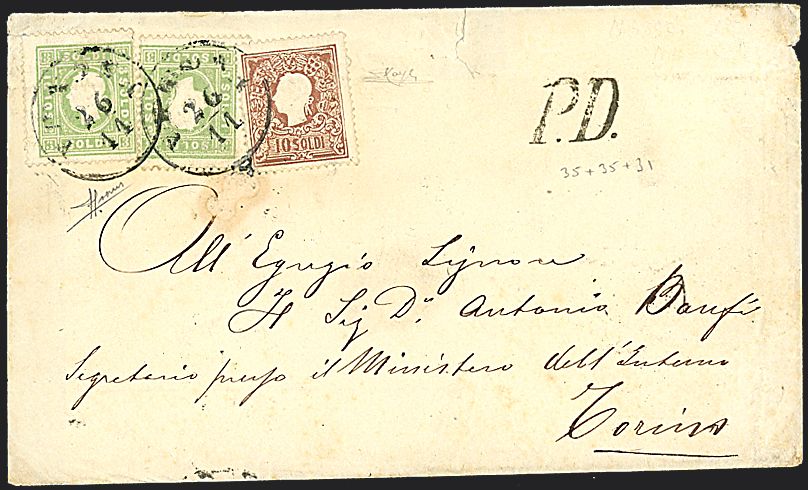 SOLDI
10 SOLDI
26
11
26
11
P.D.
35 + 35 + 31
All' Egregio Signore
Il Sig Dr. Antonio Banfi
Segretario presso il Ministero dell'Interno
Torino